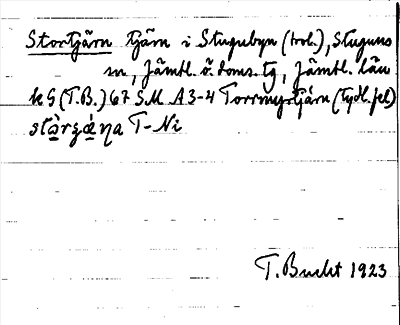 Stortjärn tjärn i Stugubyn (trol.), Stuguns
sn, Jämtl. ö. doms. tg, Jämtl. län
k G (T.B.) 67 S.M A3-4 Torrmyrtjärn (tydl. fel)
T-Ni
T. Bucht 1923